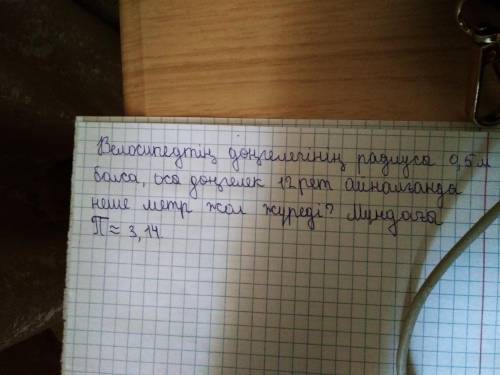 Велосипедтің дөңгелегінің радиусы 0,5 м
болса, осы дөңгелек 12 рет айналғанда
неше метр жол жүреді? Мұндағы
П ≈ 3,14.